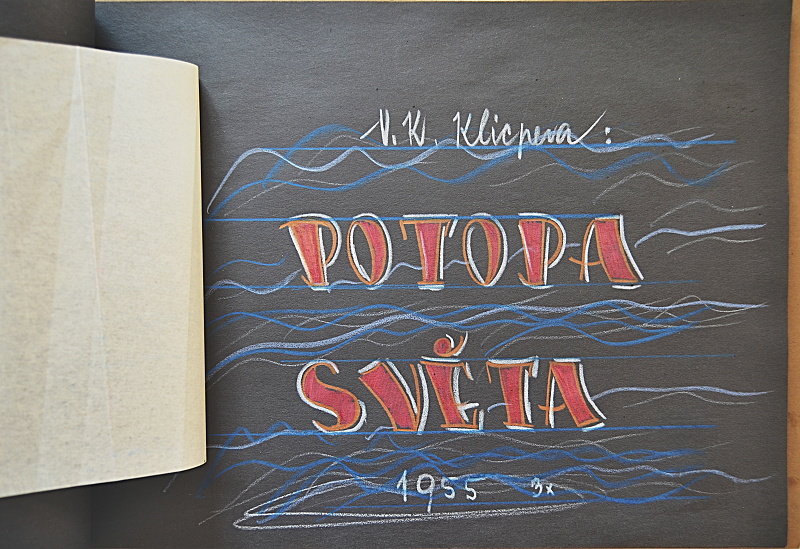 V. K. Klicpera:
POTOPA
SVĚTA
1955 3x